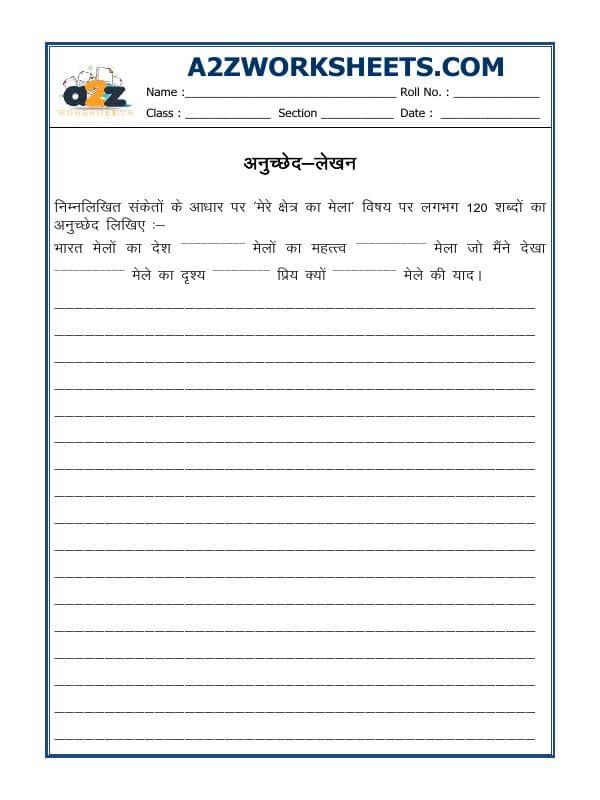 A2ZWORKSHEETS.COM
a2z
WORKSHEETS
Name :________________________________ Roll No. : _____________
Class : _____________ Section ___________ Date : _______________
अनुच्छेद–लेखन
निम्नलिखित संकेतों के आधार पर 'मेरे क्षेत्र का मेला' विषय पर लगभग 120 शब्दों का
अनुच्छेद लिखिए :–
भारत मेलों का देश ---------- मेलों का महत्त्व ----------- मेला जो मैंने देखा
----------- मेले का दृश्य --------- प्रिय क्यों ---------- मेले की याद।